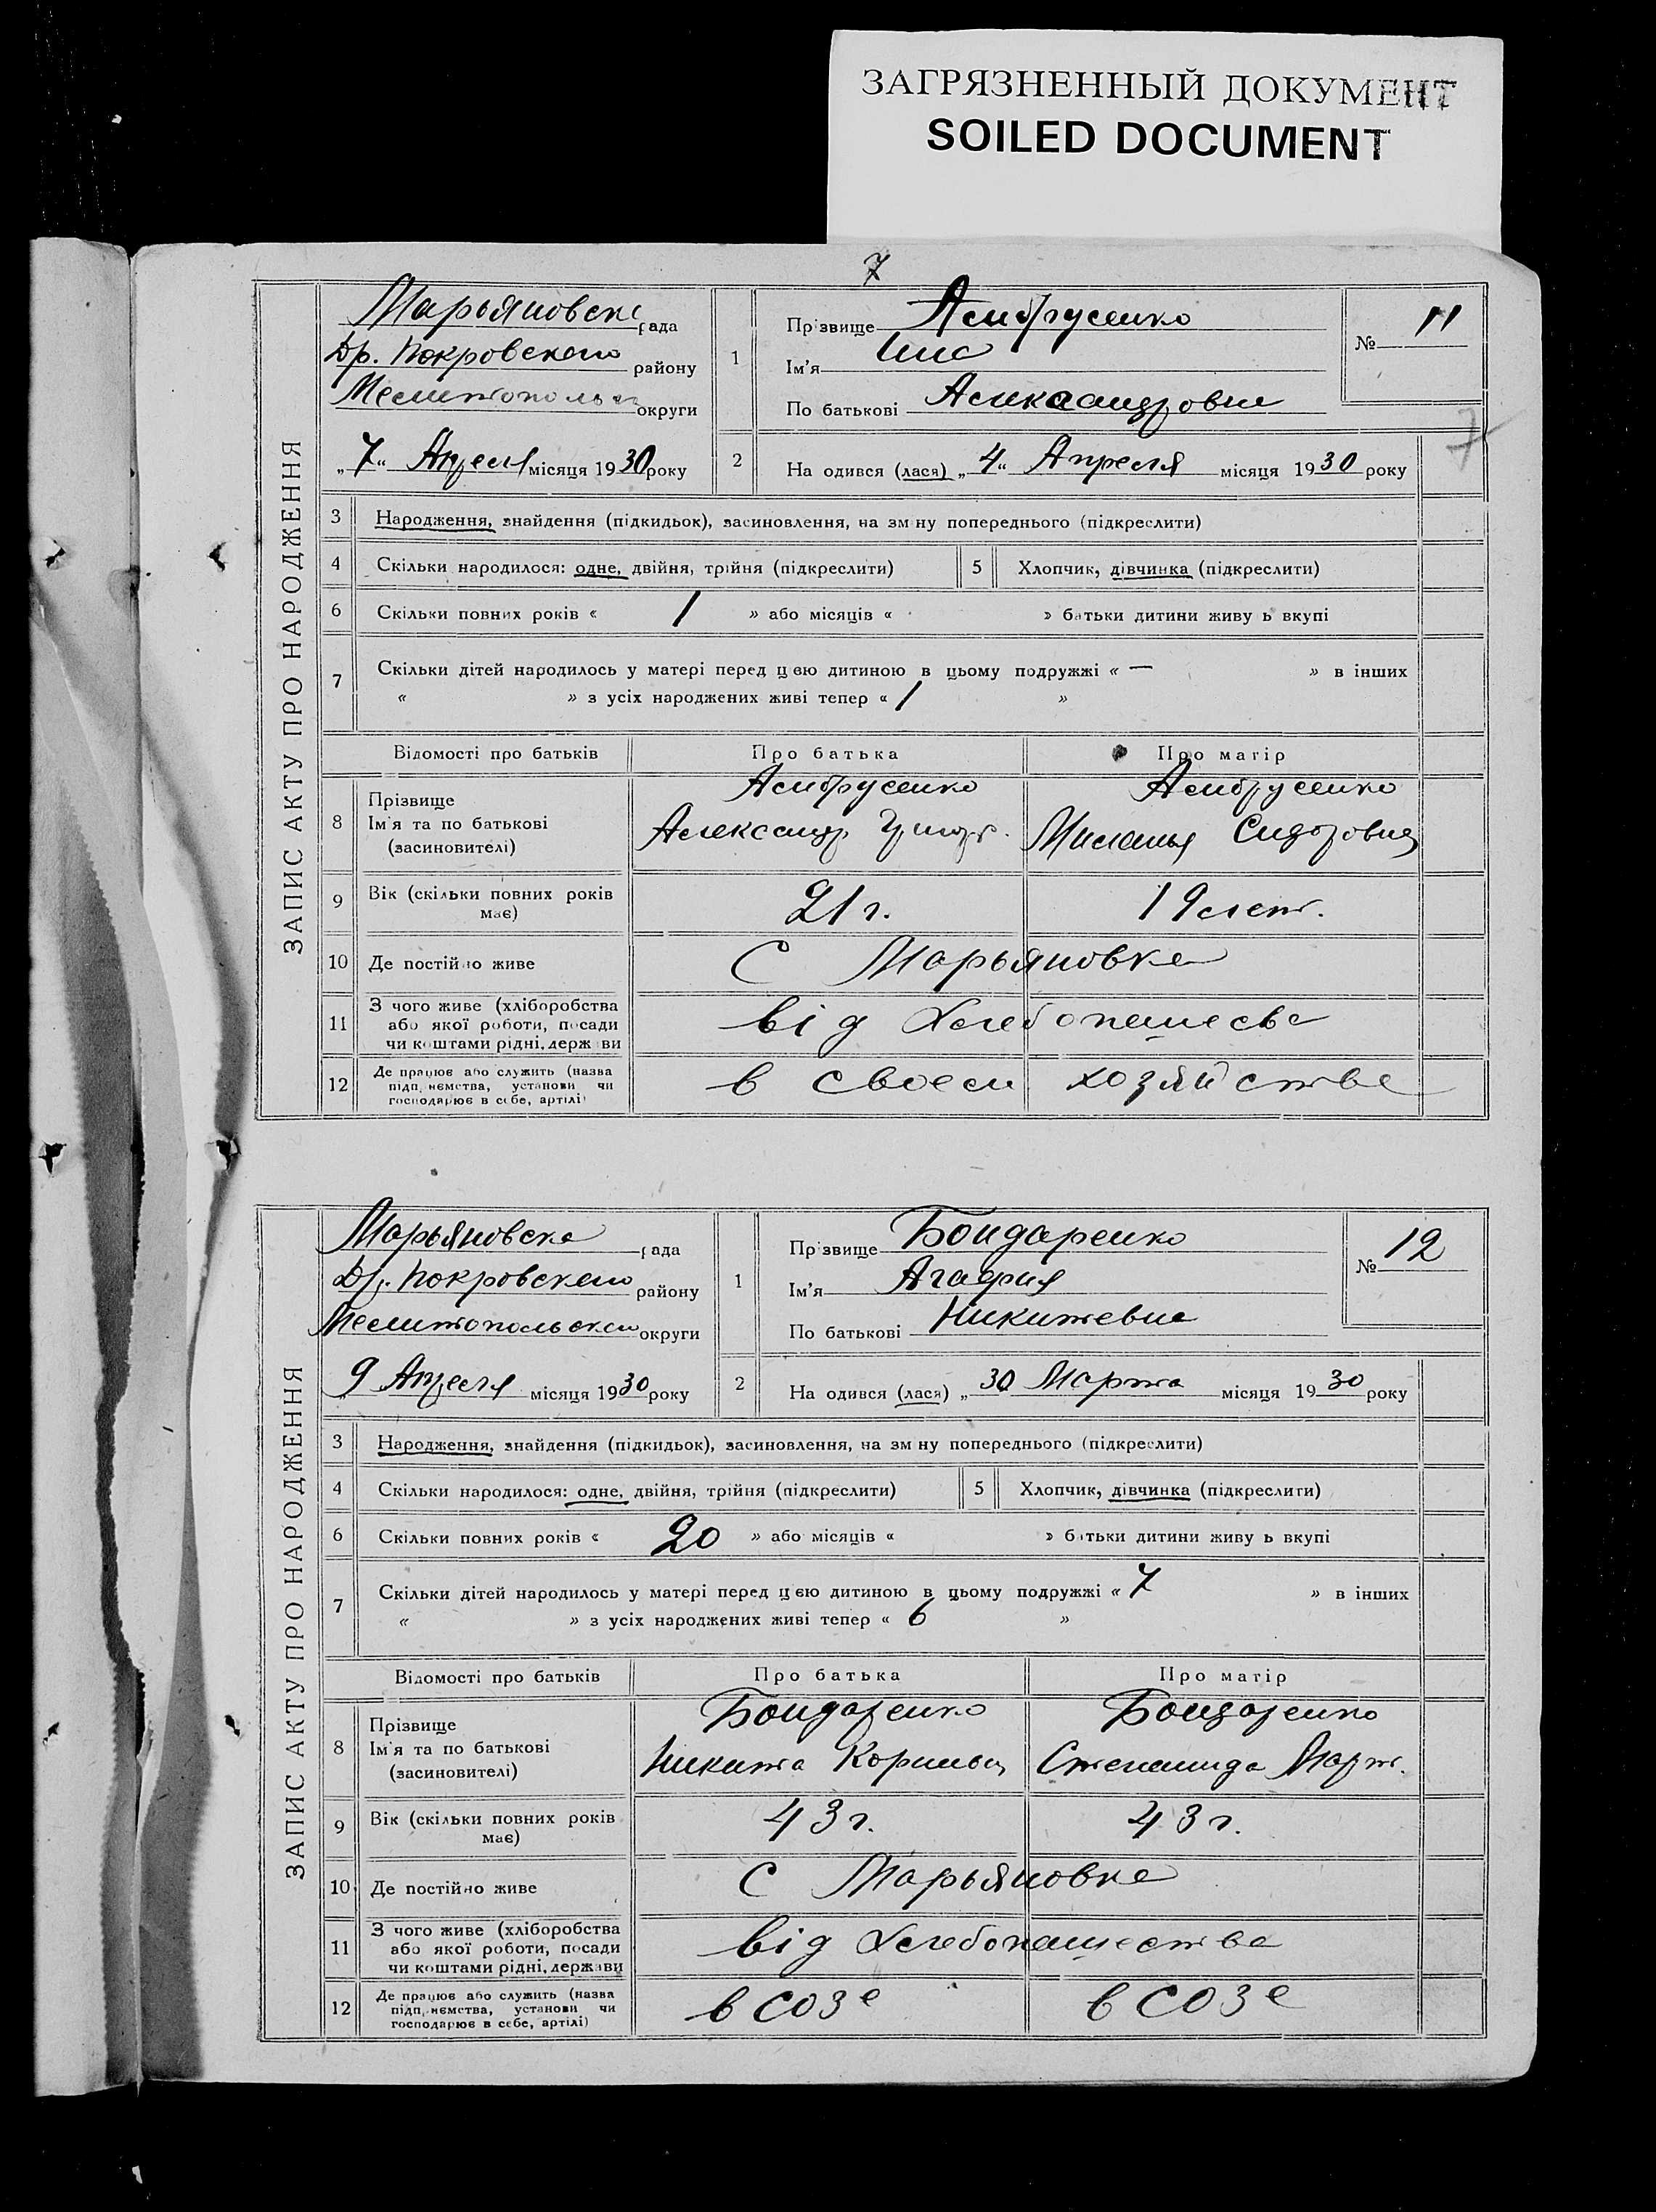 ЗАГРЯЗНЕННЫЙ ДОКУМЕНТ
SOILED DOCUMENT
7
ЗАПИС АКТУ ПРО НАРОДЖЕННЯ
Марьяновска рада
Др. Покровского району
Мелитопольск округи
„7“ Апреля місяця 1930 року
1
Прізвище
Ім'я
По батькові Александровна
№ 11
7
2
На одився (лася) „4“ Апреля місяця 1930 року
3 Народження, знайдення (підкидьок), засиновлення, на зміну попереднього (підкреслити)
4 Скільки народилося: одне, двійня, трійня (підкреслити) 5 Хлопчик, дівчинка (підкреслити)
6 Скільки повних років « 1 » або місяців « » батьки дитини живуть вкупі
7 Скільки дітей народилось у матері перед цією дитиною в цьому подружжі « — » в інших
« » з усіх народжених живі тепер « 1 »
Відомості про батьків Про батька Про матір
8 Прізвище
Ім'я та по батькові Александр Григор. Миланья Сидоровна
(засиновителі)
9 Вік (скільки повних років має) 21 г. 19 лет.
10 Де постійно живе С Марьяновка
11 З чого живе (хліборобства
або якої роботи, посади
чи коштами рідні, держави від Хлебопашесва
12 Де працює або служить (назва
підприємства, установи чи
господарює в себе, артілі) в своем хозяйстве
ЗАПИС АКТУ ПРО НАРОДЖЕННЯ
Марьяновска рада
Др. Покровского району
Мелитопольской округи
9 Апреля місяця 1930 року
1
Прізвище Бондаренко
Ім'я Агафия
По батькові Никитевна
№ 12
2
На одився (лася) „30 Марта місяця 1930 року
3 Народження, знайдення (підкидьок), засиновлення, на зміну попереднього (підкреслити)
4 Скільки народилося: одне, двійня, трійня (підкреслити) 5 Хлопчик, дівчинка (підкреслити)
6 Скільки повних років « 20 » або місяців « » батьки дитини живуть вкупі
7 Скільки дітей народилось у матері перед цією дитиною в цьому подружжі « 7 » в інших
« » з усіх народжених живі тепер « 6 »
Відомості про батьків Про батька Про матір
8 Прізвище Бондаренко Бондаренко
Ім'я та по батькові Никита Степанида Март.
(засиновителі)
9 Вік (скільки повних років має) 43 г. 43 г.
10 Де постійно живе С Марьяновка
11 З чого живе (хліборобства
або якої роботи, посади
чи коштами рідні, держави від Хлебопашества
12 Де працює або служить (назва
підприємства, установи чи
господарює в себе, артілі) в созе в созе